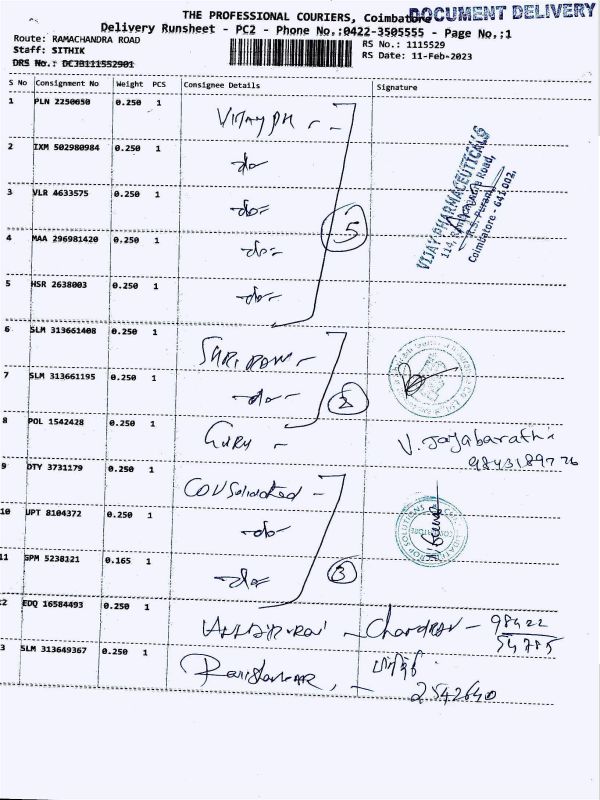 THE PROFESSIONAL COURIERS, Coimbatore
DOCUMENT DELIVERY
Delivery Runsheet - PC2 - Phone No.;0422-3505555 - Page No.;1
Route: RAMACHANDRA ROAD
RS No.: 1115529
Staff: SITHIK
RS Date: 11-Feb-2023
DRS No.: DCJB111552901
S No Consignment No Weight PCS Consignee Details Signature
1 PLN 2250050 0.250 1 VIJAY PH - -
2 IXM 502980984 0.250 1 -do-
3 VLR 4633575 0.250 1 -do-
4 MAA 296981420 0.250 1 -do-
5 HSR 2638003 0.250 1 -do-
5
VIJAY PHARMACEUTICALS
114, Ramachandra Road,
R.S. Puram,
Coimbatore - 641 002.
6 SLM 313661408 0.250 1 SHRI RAM -
7 SLM 313661195 0.250 1 -do-
2
8 POL 1542428 0.250 1 GURU - V. Jayabarathi
9843189776
9 OTY 3731179 0.250 1 CONSolidated -
10 UPT 8104372 0.250 1 -do-
11 SPM 5238121 0.165 1 -do-
3
2 EDQ 16584493 0.250 1 - Chandran - 98422
54785
3 SLM 313649367 0.250 1 -
2542640